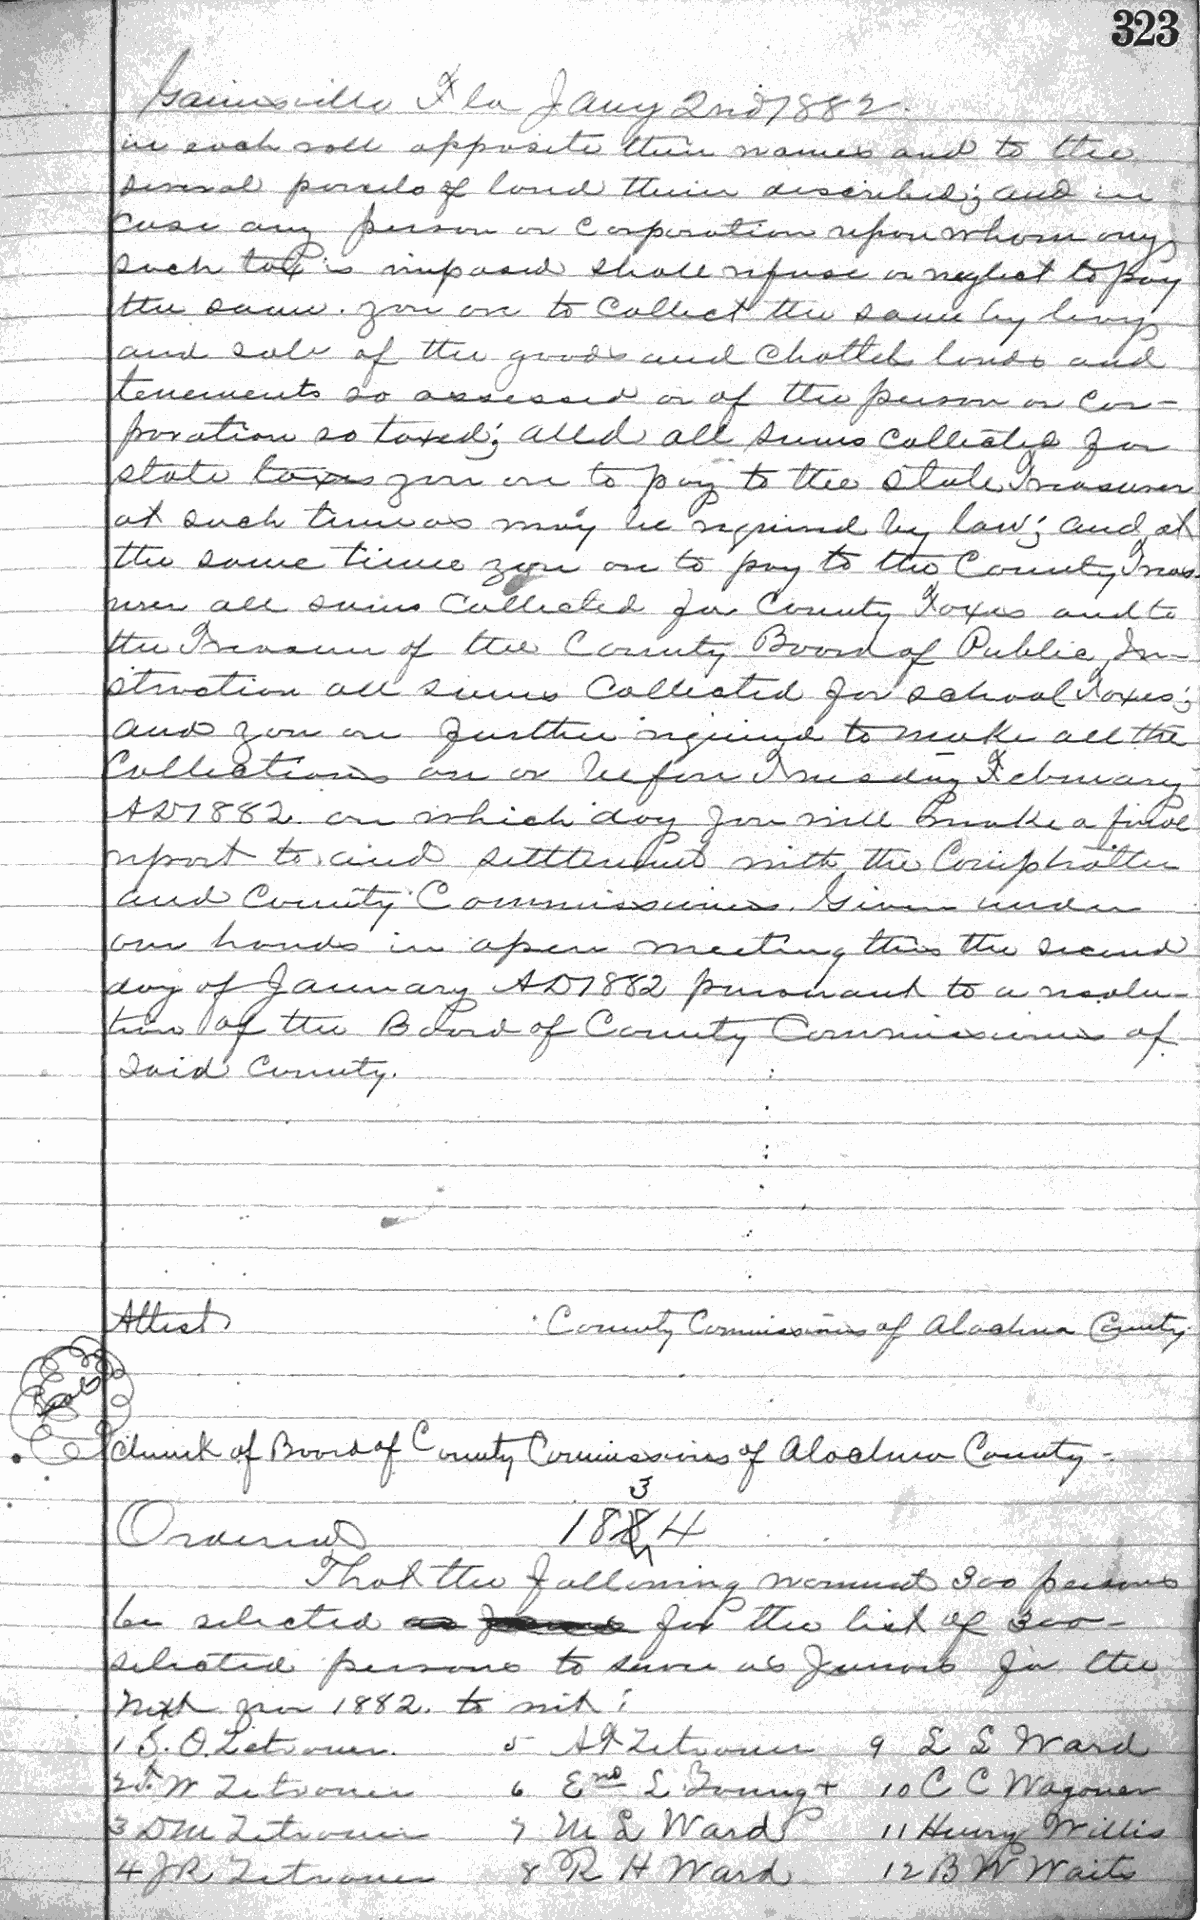 323
Gainesville Fla Jany 2nd 1882.
in each roll opposite their names and to the
several parcels of land therin described; and in
case any person or Corporation upon whom any
such tax is imposed shall refuse or neglect to pay
the same. you are to Collect the same by levy
and sale of the goods and Chattels lands and
tenements so assessed or of the person or Cor-
poration so taxed; and all sums Collected for
state taxes you are to pay to the State Treasurer
at such time as may be required by law; and at
the same time you are to pay to the County Treas-
urer all sums Collected for County Taxes and to
the Treasurer of the County Board of Public In-
struction all sums Collected for school Taxes;
and you are further required to make all the
Collections on or before Tuesday February
AD 1882. on which day you will make a final
report to and settlement with the Comptroller
and County Commissioners. Given under
our hands in open meeting this the second
day of January AD 1882 pursuant to a resolu-
tion of the Board of County Commissioners of
Said County.
Attest County Commissioners of Alachua County.
Seal
Clerk of Board of County Commissioners of Alachua County.
3
Ordered 1884
That the following named 300 persons
be selected for the list of 300
selected persons to serve as Jurors for the
next year 1882. to wit:
1 S. O. Zetrouer. 5 A F Zetrouer 9 L L Ward
2 T. W Zetrouer 6 End L Young + 10 C C Wagoner
3 D M Zetrouer 7 M L Ward 11 Henry Willis
4 J R Zetrouer 8 R H Ward 12 B W Waits